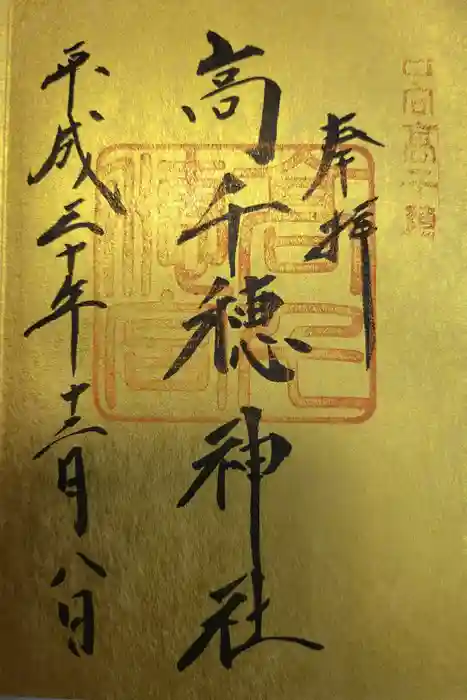 日向高千穂
奉拝
高千穂神社
平成三十年十二月八日